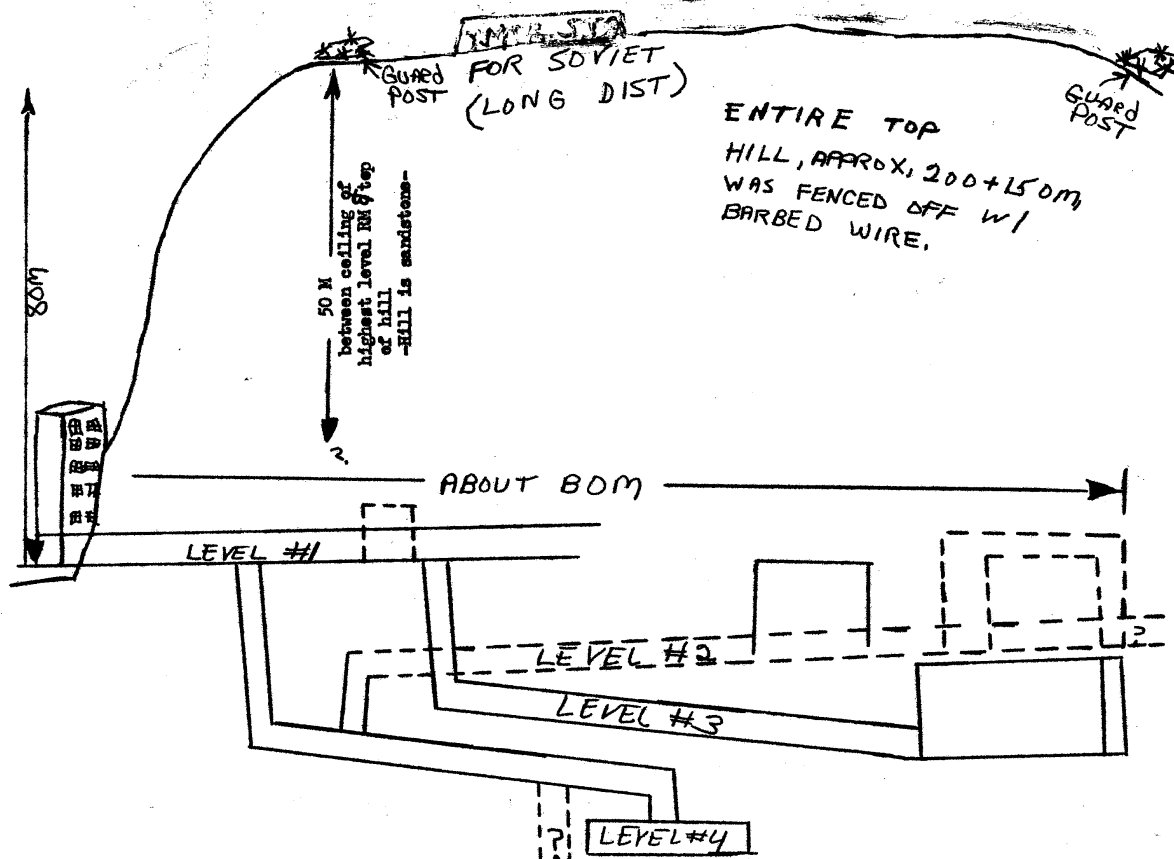 GUARD
POST
FOR SOVIET
(LONG DIST)
GUARD
POST
ENTIRE TOP
HILL, APPROX, 200+150M,
WAS FENCED OFF W/
BARBED WIRE.
80M
50 M
between ceiling of
highest level RM & top
of hill
-Hill is sandstone-
?
ABOUT 80M
LEVEL #1
LEVEL #2
?
LEVEL #3
?
LEVEL #4